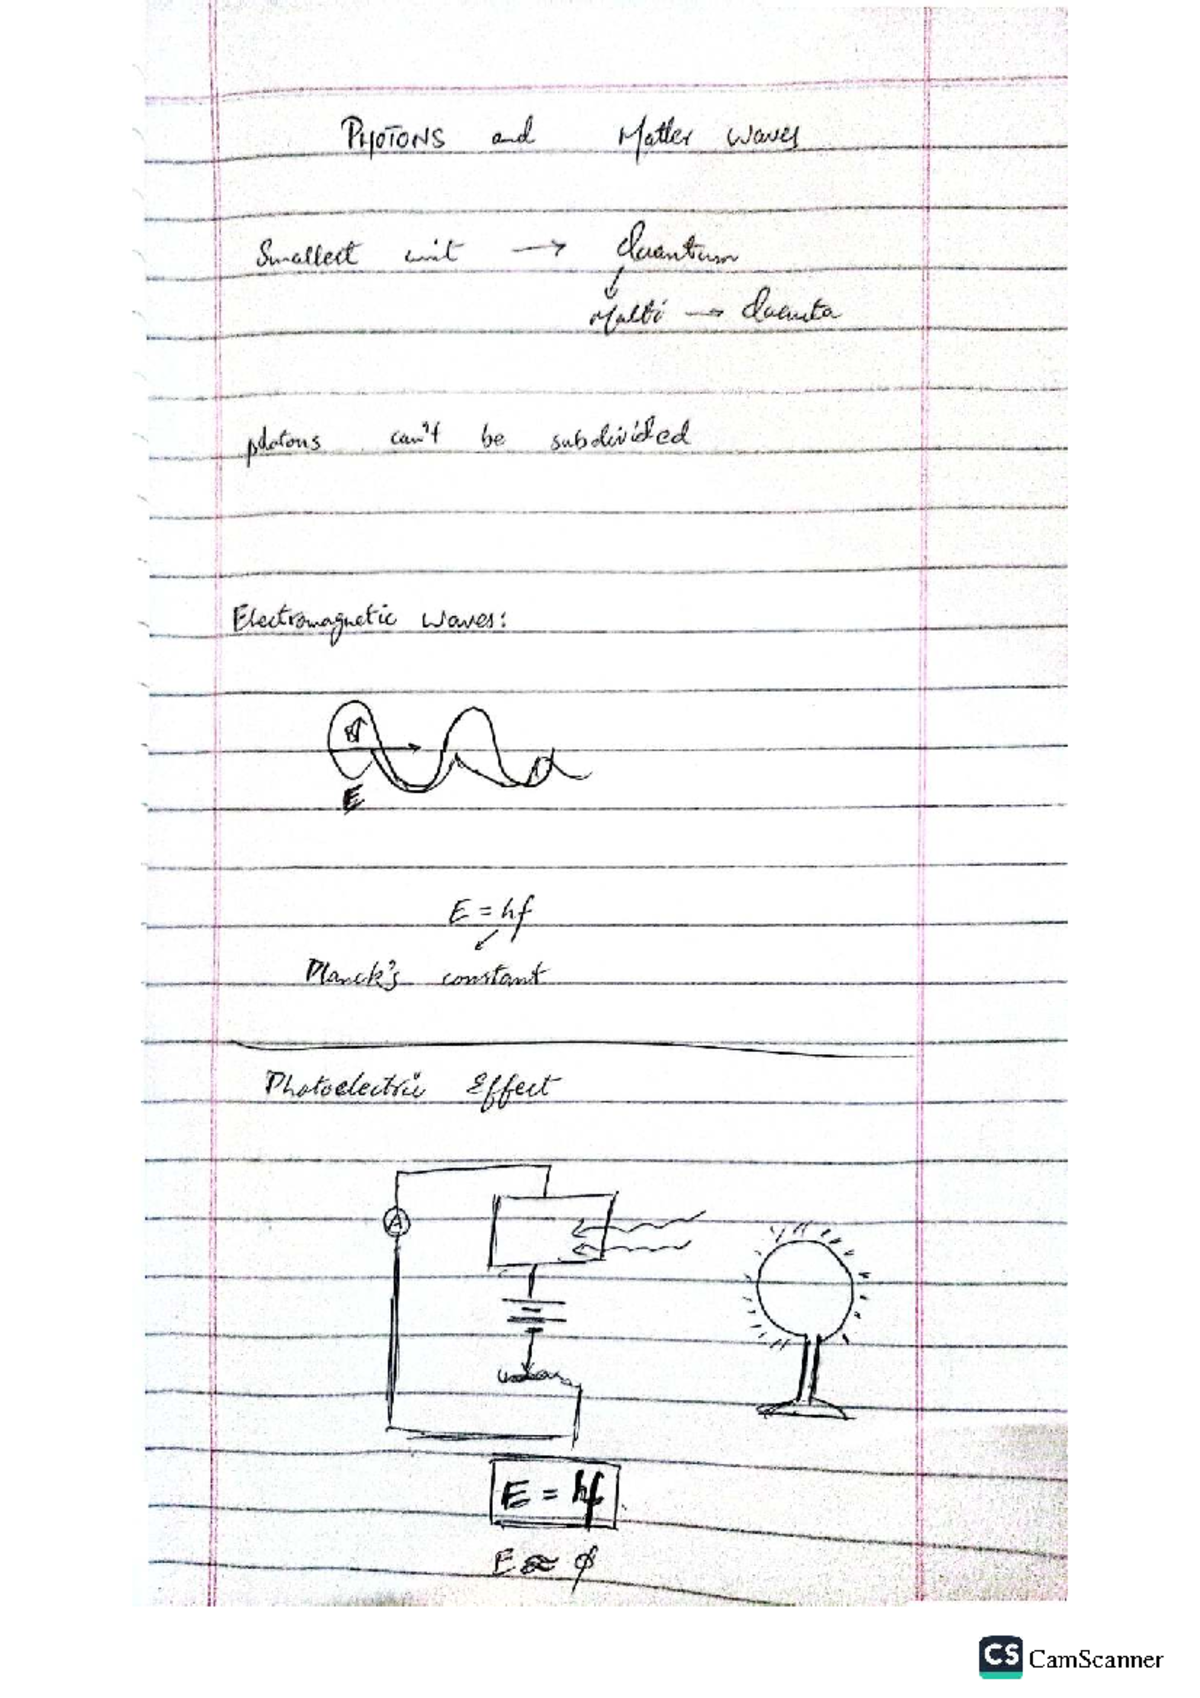 PHOTONS and Matter Waves
Smallest unit → Quantum
Multi → Quanta
photons can't be subdivided
Electromagnetic waves:
E
E = hf
Planck's constant
Photoelectric Effect
A
E = hf
E ≈ ϕ
CS CamScanner